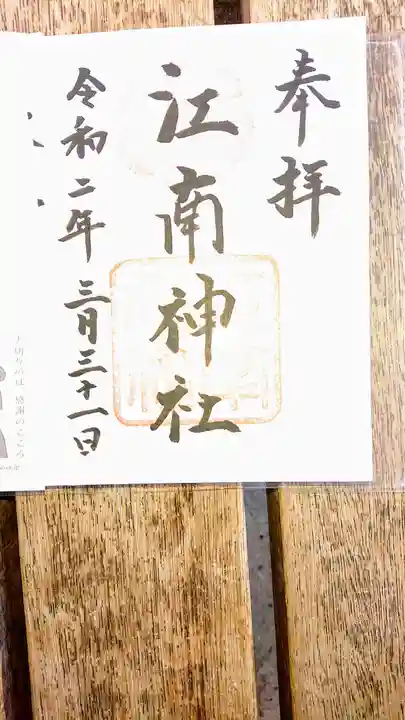 奉拝
江南神社
令和二年 三月三十一日